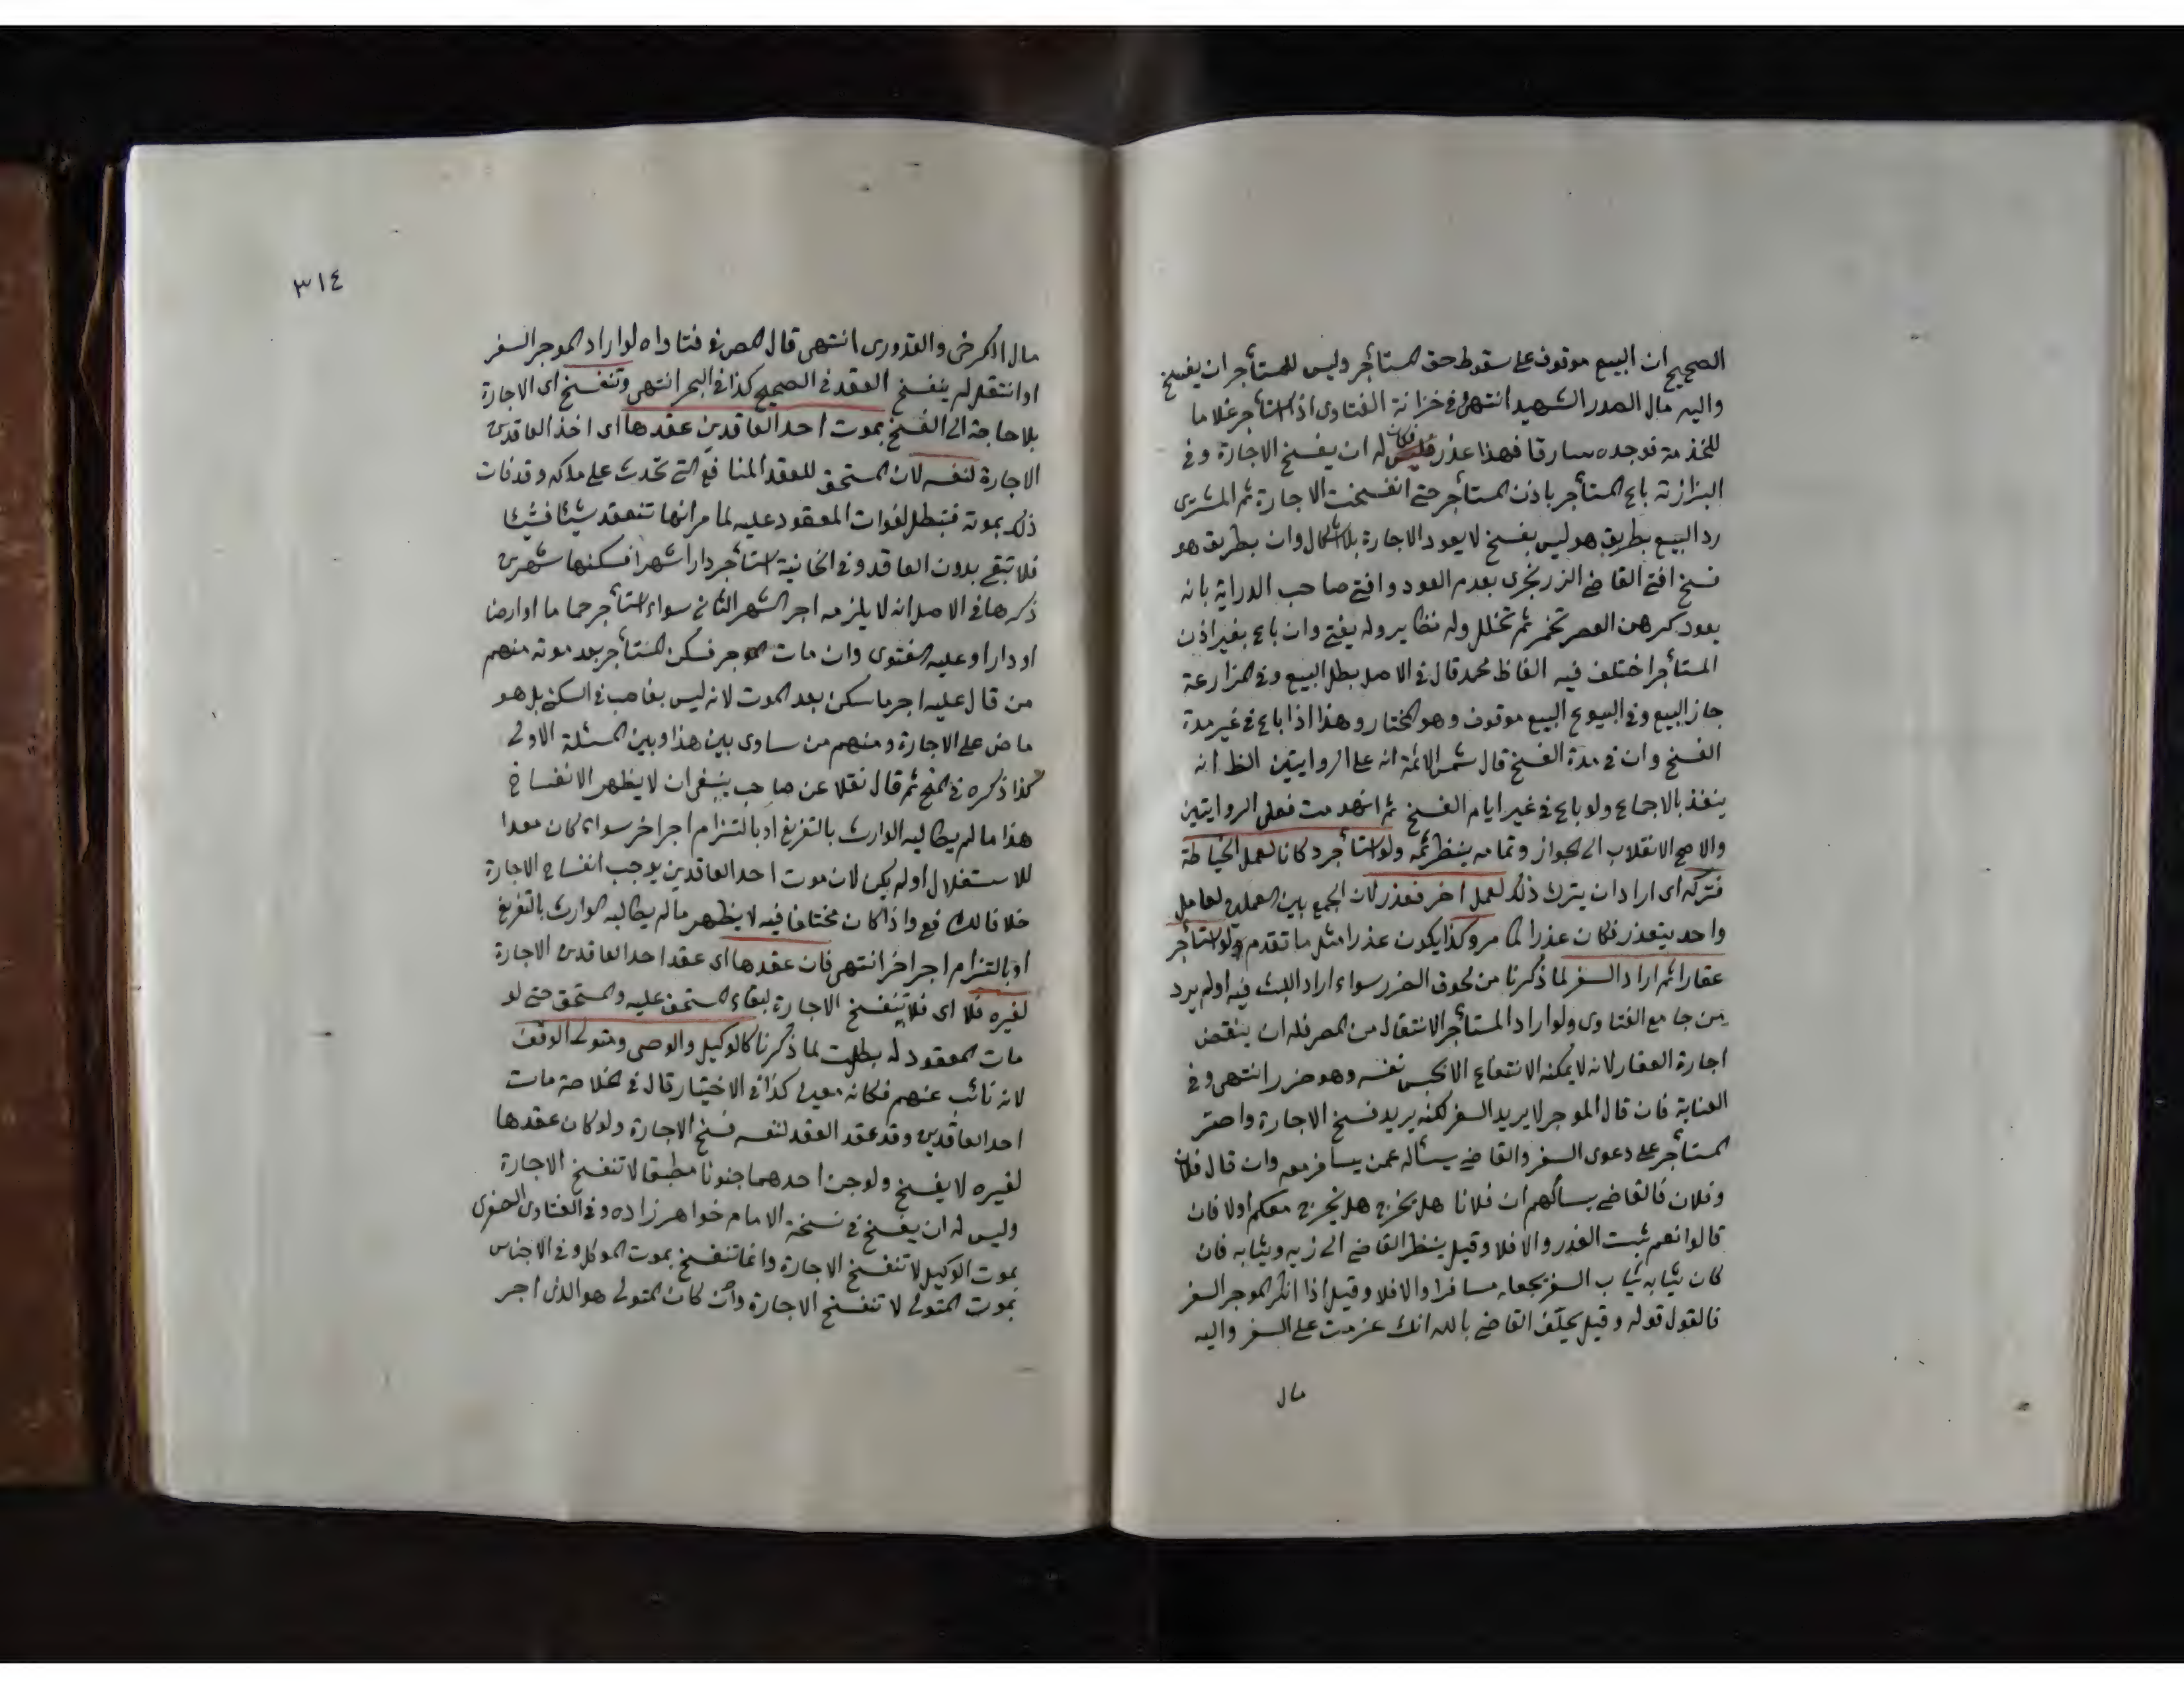 الصحيح ان البيع موقوف على سقوط حق المستأجر وليس للمستأجر ان يفسخ
واليه مال الصدر الشهيد انتهى وفى خزانة الفتاوى اذا استأجر غلاما
للخدمة فوجده سارقا فهذا عذر فكان له ان يفسخ الاجارة وفى
البزازية باع المستأجر باذن المستأجر حتى انفسخت الاجارة ثم المشترى
رد البيع بطريق هو ليس بفسخ لا يعود الاجارة بلا اشكال وان بطريق هو
فسخ افتى القاضى الزرنجرى بعدم العود وافتى صاحب الدراية بانه
يعود كرهن العصير تخمر ثم تخلل وله نظاير وله يفتى وان باع بغير اذن
المستأجر اختلف فيه الفاظ محمد قال فى الاصل بطل البيع وفى المزارعة
جاز البيع وفى البيوع البيع موقوف وهو المختار وهذا اذا باع فى غير مدة
الفسخ وان فى مدة الفسخ قال شمس الائمة انه على الروايتين الظ انه
ينفذ بالاجماع ولو باع فى غير ايام الفسخ ثم انهدمت فعلى الروايتين
والاصح الانقلاب الى الجواز وتمامه ينظر ثمه ولو استأجر دكانا لعمل الخياطة
فتركه اى اراد ان يترك ذلك لعمل اخر فعذر لان الجمع بين العملين لعامل
واحد يتعذر فكان عذرا لما مر وكذا يكون عذرا مثل ما تقدم ولو استأجر
عقارا ثم اراد السفر لما ذكرنا من لحوق الضرر سواء اراد اللبث فيه اولم يرد
من جامع الفتاوى ولو اراد المستأجر الانتقال من المصر فله ان ينقض
اجارة العقار لانه لا يمكنه الانتفاع الا بحبس نفسه وهو ضرر انتهى وفى
العناية فان قال الموجر لا يريد السفر لكنه يريد فسخ الاجارة واصر
المستأجر على دعوى السفر والقاضى يسأله عمن يسافر معه وان قال فلان
وفلان فالقاضى يسألهم ان فلانا هل يخرج هل يخرج معكم اولا فان
قالوا نعم ثبت العذر والا فلا وقيل ينظر القاضى الى زيه وثيابه فان
كان ثيابه ثياب السفر يجعله مسافرا والا فلا وقيل اذا انكر الموجر السفر
فالقول قوله وقيل يحلف القاضى بالله انك عزمت على السفر واليه
مال
٣١٤
مال الكرخى والقدورى انتهى قال المص فى فتاواه لو اراد الموجر السفر
او انتقل لم ينفسخ العقد فى الصحيح كذا فى البحر انتهى وتنفسخ اى الاجارة
بلا حاجة الى الفسخ بموت احد العاقدين عقدها اى اخذ العاقدين
الاجارة لنفسه لان المستحق للعقد المنافع التى تحدث على ملكه وقد فات
ذلك بموته فتبطل لفوات المعقود عليه لما مر انها تنعقد شيئا فشيئا
فلا تبقى بدون العاقد وفى الخانية استأجر دارا شهرا فسكنها شهرين
ذكرها فى الاصل انه لا يلزمه اجر الشهر الثانى سواء استأجر حماما او ارضا
او دارا وعليه الفتوى وان مات الموجر فسكن المستأجر بعد موته منهم
من قال عليه اجر ما سكن بعد الموت لانه ليس بغاصب فى السكنى بل هو
ماض على الاجارة ومنهم من ساوى بين هذا وبين المسئلة الاولى
كذا ذكره فى المنح ثم قال نقلا عن صاحب ينبغى ان لا يظهر الانفساخ
هذا ما لم يطالبه الوارث بالتفريغ او بالتزام اجر اخر سواء كان معدا
للاستغلال اولم يكن لان موت احد العاقدين يوجب انفساخ الاجارة
خلافا للشافع واذا كان مختلفا فيه لا يظهر ما لم يطالبه الوارث بالتفريغ
او بالتزام اجر اخر انتهى فان عقدها اى عقد احد العاقدين الاجارة
لغيره فلا اى فلا تنفسخ الاجارة لبقاء المستحق عليه والمستحق حتى لو
مات المعقود له بطلت لما ذكرنا كالوكيل والوصى ومتولى الوقف
لانه نائب عنهم فكانه معين كذا فى الاختيار قال فى الخلاصة مات
احد العاقدين وقد عقد العقد لنفسه فسخ الاجارة ولو كان عقدها
لغيره لا يفسخ ولو جن احدهما جنونا مطبقا لا تنفسخ الاجارة
وليس له ان يفسخ فى نسخة الامام خواهر زاده وفى الفتاوى الصغرى
بموت الوكيل لا تنفسخ الاجارة وانما تنفسخ بموت الموكل وفى الاجناس
بموت المتولى لا تنفسخ الاجارة وان كان المتولى هو الذى اجر